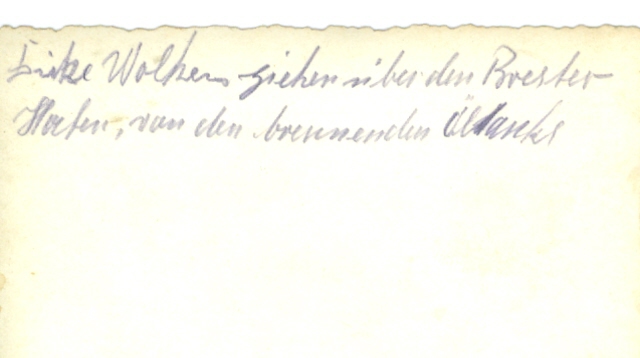 Dicke Wolken ziehen über den Brester
Hafen, von den brennenden Öltanks